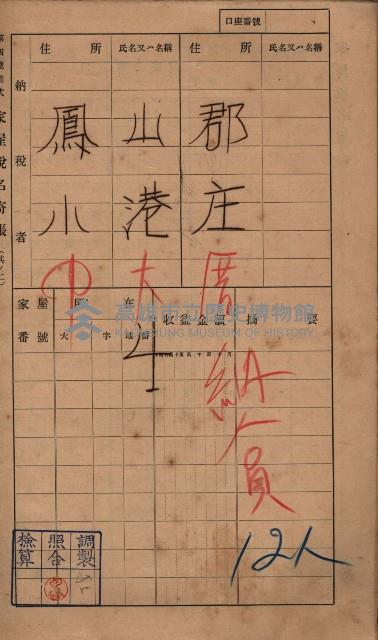 口座番號
第四號樣式 家屋稅名寄帳
納稅者
住所
氏名又ハ名稱
住所
氏名又ハ名稱
鳳山郡
小港庄
中大厝
納人員
12人
家屋番號
大字
收益金額
摘要
高雄市立歷史博物館
KAOHSIUNG MUSEUM OF HISTORY
調製
照合
檢算